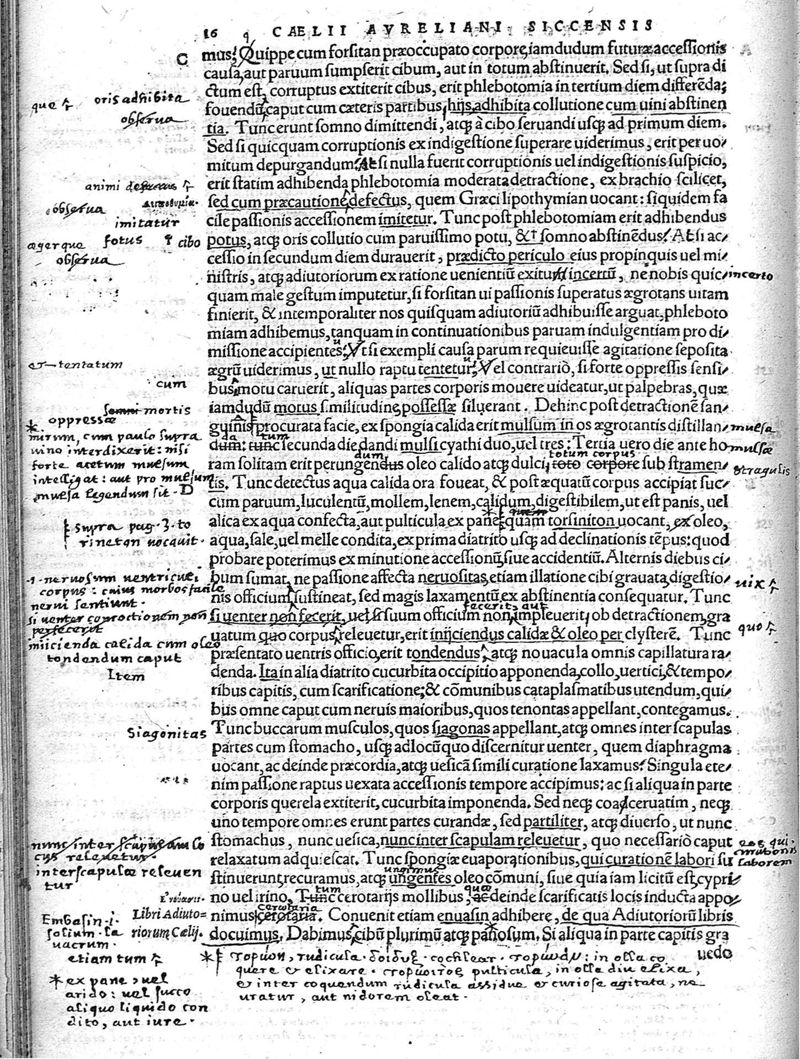 16 CAELII AVRELIANI SICCENSIS
C mus. Quippe cum forsitan præoccupato corpore, iamdudum futuræ accessionis
causa, aut paruum sumpserit cibum, aut in totum abstinuerit. Sed si, ut supra di
ctum est, corruptus extiterit cibus, erit phlebotomia in tertium diem differēda;
fouendū caput cum cæteris partibus, hijs adhibita collutione cum uini abstinen
tia. Tunc erunt somno dimittendi, atq; à cibo seruandi usq; ad primum diem.
Sed si quicquam corruptionis ex indigestione superare uiderimus, erit per uo/
mitum depurgandum. At si nulla fuerit corruptionis uel indigestionis suspicio,
erit statim adhibenda phlebotomia moderata detractione, ex brachio scilicet,
sed cum præcautione defectus, quem Græci lipothymian uocant: siquidem fa
cile passionis accessionem imitetur. Tunc post phlebotomiam erit adhibendus
potus, atq; oris collutio cum paruissimo potu, & somno abstinēdus. At si ac/
cessio in secundum diem durauerit, prædicto periculo eius propinquis uel mi/
nistris, atq; adiutoriorum ex ratione uenientiū exitu incertū, ne nobis quic/
quam male gestum imputetur, si forsitan ui passionis superatus ægrotans uitam
finierit, & intemporaliter nos quisquam adiutoriū adhibuisse arguat, phleboto
miam adhibemus, tanquam in continuationibus paruam indulgentiam pro di/
missione accipientes. Vt si exempli causa parum requieuisse agitatione seposita
ægrū uiderimus, ut nullo raptu tentetur. Vel contrariò, si forte oppressis sensi/
bus motu caruerit, aliquas partes corporis mouere uideatur, ut palpebras, quæ
iamdudū motus similitudine possessæ siluerant. Dehinc post detractionē san/
guinis procurata facie, ex spongia calida erit mulsum in os ægrotantis distillan/
dum: tunc secunda die dandi mulsi cyathi duo, uel tres: Tertia uero die ante ho/
ram solitam erit perungendus oleo calido atq; dulci, toto corpore sub stramen/
tis. Tunc detectus aqua calida ora foueat, & postæquatū corpus accipiat suc/
cum paruum, luculentū, mollem, lenem, calidum, digestibilem, ut est panis, uel
alica ex aqua confecta, aut pulticula, ex pane quam torsiniton uocant, ex oleo,
aqua, sale, uel melle condita, ex prima diatrito usq; ad declinationis tēpus: quod
probare poterimus ex minutione accessionū, siue accidentiū. Alternis diebus ci/
bum sumat, ne passione affecta neruositas, etiam illatione cibi grauata, digestio/
nis officium sustineat, sed magis laxamentū ex abstinentia consequatur. Tunc
si uenter non fecerit, uel si suum officium non impleuerit, ob detractionem, gra
uatum quo corpus releuetur, erit inijciendus calidæ & oleo per clysterē. Tunc
præsentato uentris officio, erit tondendus, atq; nouacula omnis capillatura ra/
denda. Ita in alia diatrito cucurbita occipitio apponenda, collo, uertici, & tempo/
ribus capitis, cum scarificatione; & cōmunibus cataplasmatibus utendum, qui/
bus omne caput cum neruis maioribus, quos tenontas appellant, contegamus.
Tunc buccarum musculos, quos siagonas appellant, atq; omnes inter scapulas
partes cum stomacho, usq; ad locū quo discernitur uenter, quem diaphragma
uocant, ac deinde præcordia, atq; uesicā simili curatione laxamus. Singula ete/
nim passione raptus uexata accessionis tempore accipimus: ac si aliqua in parte
corporis querela extiterit, cucurbita imponenda. Sed neq; coaceruatim, neq;
uno tempore omnes erunt partes curandæ, sed partiliter, atq; diuerso, ut nunc
stomachus, nunc uesica, nunc inter scapulam releuetur, quo necessariò caput
relaxatum adquiescat. Tunc spongiæ euaporationibus, qui curationē labori su
stinuerunt, recuramus, atq; ungentes oleo cōmuni, siue quia iam licitū est, cypri
no uel irino. Tunc cerotarijs mollibus, ac deinde scarificatis locis inducta appo
nimus cerotaria. Conuenit etiam enuasin adhibere, de qua Adiutoriorū libris
docuimus. Dabimus cibū plurimū atq; passiosum. Si aliqua in parte capitis gra
uedo
que
oris adhibita
obserua
animi
obserua
imitatur
fotus
cibo
æger quo
obserua
incerto
tentatum
cum
mortis
oppressæ
mirum, cum paulo supra
uino interdixerit: nisi
forte acetum mulsum
intelligat: aut pro mulsum
mulsa legendum sit.
mulsa
mulsæ
totum corpus
stragulis
Supra pag. 3. to
rineton uocauit.
neruosum uentriculi
corpus: cuius morbos facile
nerui sentiunt.
uix
fecerit, aut
si uenter coproctionem non
perfecerit
quo
iniicienda calida cum oleo
tondendum caput
Item
Siagonitas
nunc interscapulam lo
cus releuetur.
interscapulæ releuen
tur
qui
curationis
laborem
ungimus
tum
cerotaria
Embasin .i.
solium
uacrum.
Libri Adiuto=
riorum Celij.
etiam tum
* ex pane, uel
arido: uel succo
aliquo liquido con
dito, aut iure.
rudicula
cochlear
in olla co
quere & elixare
pulticula, in olla diu elixa,
& inter coquendum rudicula assidue & curiose agitata, ne
uratur, aut nidorem oleat.